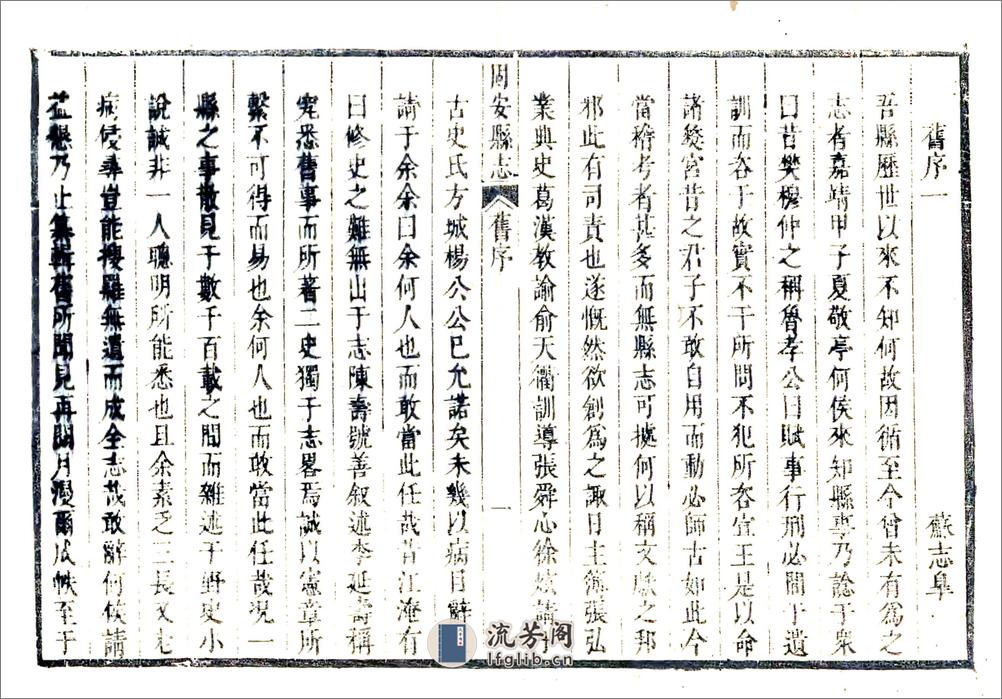 舊序一 蘇志皐
吾縣歷世以來不知何故因循至今曾未有為之
志者嘉靖甲子夏敬亭何侯來知縣事乃諗于眾
曰昔樊穆仲之稱魯孝公曰賦事行刑必問于遺
訓而咨于故實不干所問不犯所咨宣王是以命
諸夷宮昔之君子不敢自用而動必師古如此今
當稽考者甚多而無縣志可據何以稱文獻之邦
邪此有司責也遂慨然欲創為之諏日主簿張弘
業典史葛漢教諭俞天衢訓導張舜心徐 請于
固安縣志 舊序 一
古史氏方城楊公公已允諾矣未幾以病目辭
請于余余曰余何人也而敢當此任哉昔江淹有
曰修史之難無出于志陳壽號善叙述李延壽稱
究悉舊事而所著二史獨于志畧焉誠以憲章所
繫不可得而易也余何人也而敢當此任哉況一
縣之事散見于數千百載之間而雜述于野史小
說誠非一人聰明所能悉也且余素乏三長又老
病侵尋豈能搜羅無遺而成全志哉敢辭何侯請
益懇乃止纂輯舊所聞見再閱月漫爾成帙至于
流芳阁
lfglib.cn